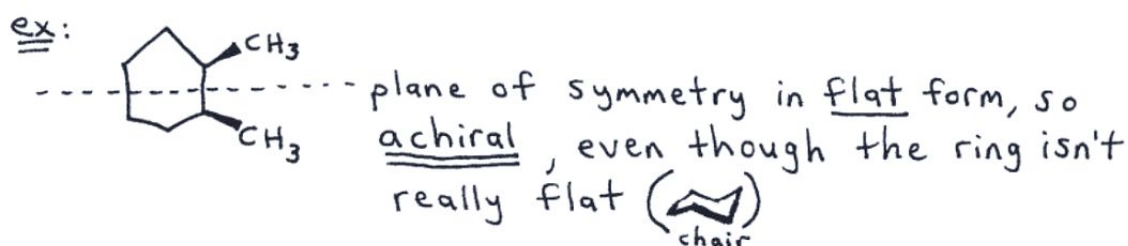 ex:
CH3
plane of symmetry in flat form, so
CH3
achiral, even though the ring isn't
really flat (
)
chair